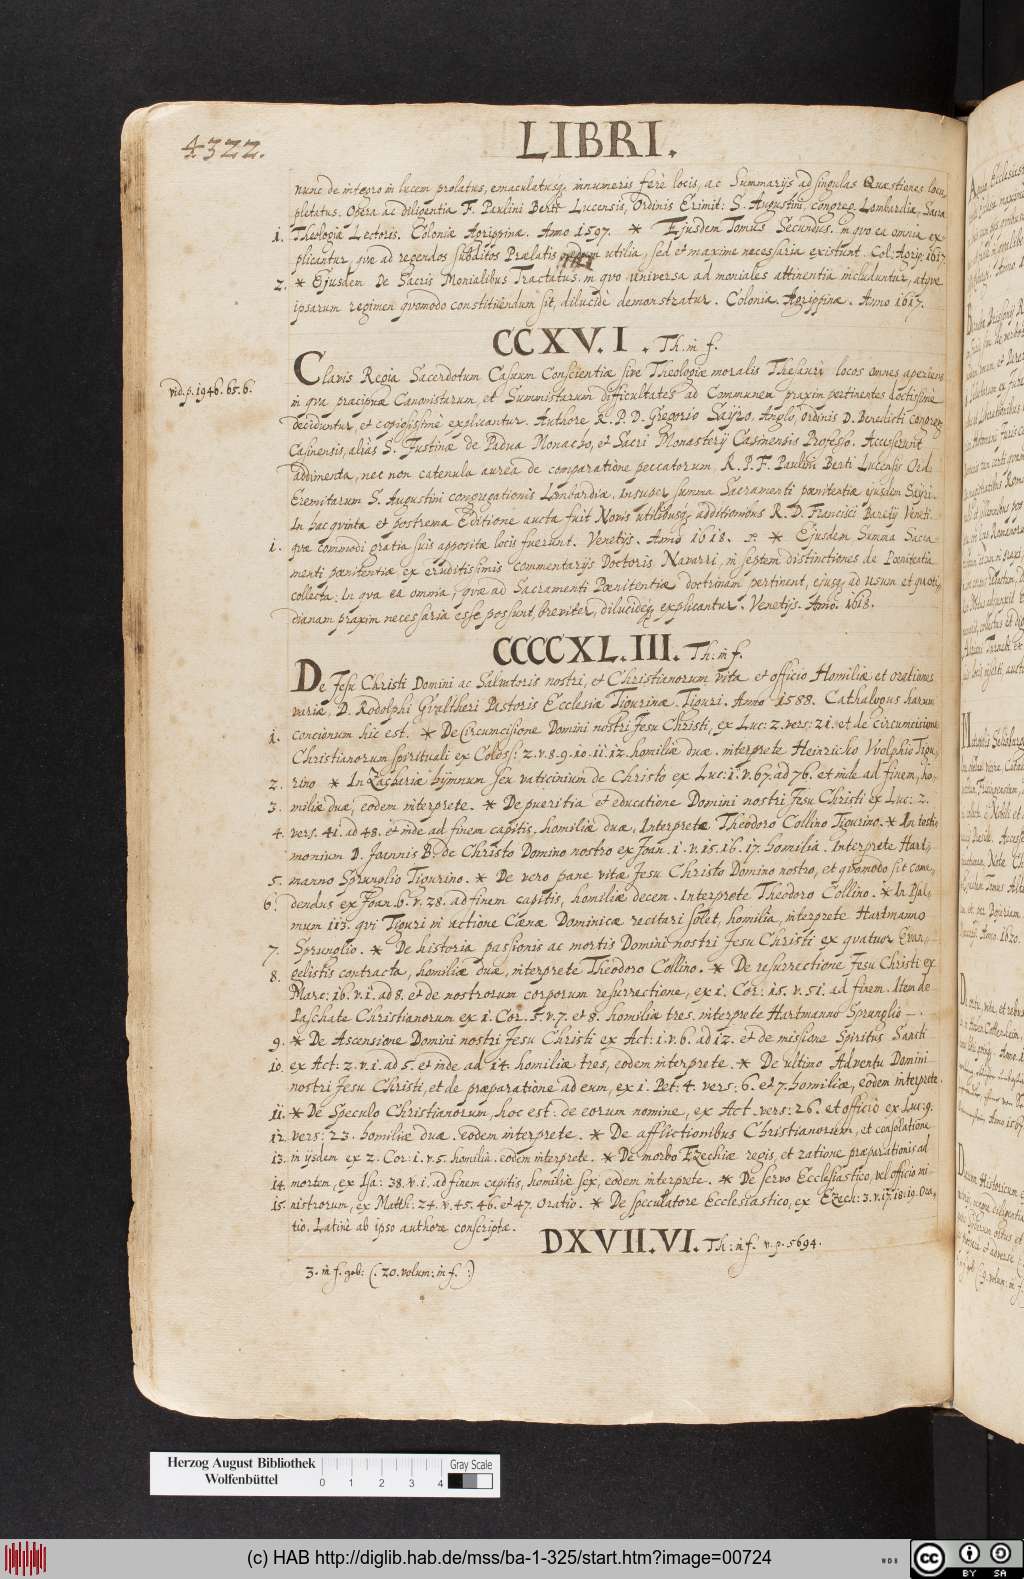 4322.
LIBRI.
nunc de integro in lucem prolatus, emaculatusq; innumeris ferè locis, ac Summarijs ad singulas Quæstiones locu
pletatus. Opera ac diligentia F. Paulini Berti Lucensis, Ordinis Erimit: S. Augustini, congreg. Lombardiæ, Sacræ
1. Theologiæ Lectoris. Coloniæ Agrippinæ. Anno 1597. * Ejusdem Tomus Secundus. in quo ea omnia ex-
plicantur, quæ ad regendos subditos Prælatis utilia, sed et maxime necessaria existunt. Col: Agrip: 1617.
2. * Ejusdem De Sacris Monialibus Tractatus. in quo universa ad moniales attinentia includuntur, atque
ipsarum regimen quomodo constituendum sit, dilucide demonstratur. Coloniæ Agrippinæ. Anno 1617.
CCXV.I. Th: in f.
vid. p. 1946. 65. 6.
Clavis Regia Sacerdotum Casuum Conscientiæ sive Theologiæ moralis Thesauri locos omnes aperiens
in qva præcipuæ Canonistarum et Summistarum difficultates ad Communem praxim pertinentes doctissime
deciduntur, et copiosissimè explicantur. Authore R. P. D. Gregorio Sayro. Anglo, Ordinis D. Benedicti congreg.
Casinensis, aliàs S. Justinæ de Padua Monacho, et Sacri Monasterij Casinensis Professo. Accesserunt
addimenta, nec non catenula aurea de comparatione peccatorum, R. P. F. Paulini Berti Lucensis Ord.
Eremitarum S. Augustini congregationis Lombardiæ. insuper summa Sacramenti pœnitentiæ ejusdem Sayri.
In hac quinta et postrema Editione aucta fuit Novis utilibusq; additionibus R. D. Francisci Baretij Veneti.
1. quæ commodi gratia suis appositæ locis fuerunt. Venetijs. Anno 1618. * * Ejusdem Summa Sacra-
menti pœnitentiæ, ex eruditissimis commentarijs Doctoris Navarri, in septem distinctiones de Pœnitentia
collecta: In qva ea omnia, quæ ad Sacramenti Pœnitentiæ doctrinam pertinent, ejusq; ad usum et quoti-
dianam praxim necessaria esse possunt, breviter, dilucideq; explicantur. Venetijs. Anno. 1618.
CCCCXL.III. Th: in f.
De Jesu Christi Domini ac Salvatoris nostri, et Christianorum vita et officio Homiliæ et orationes
variæ, D. Rodolphi Gvaltheri Pastoris Ecclesiæ Tigurinæ. Tiguri. Anno 1588. Cathalogus harum
1. concionum hic est. * De Circumcisione Domini nostri Jesu Christi, ex Luc: 2. vers: 21. et de circumcisione
Christianorum spirituali ex Coloss: 2. v. 8. 9. 10. 11. 12. homiliæ duæ. interprete Heinricho Vvolphio Tigu-
2. rino * In Zachariæ hymnum seu vaticinium de Christo ex Luc: 1. v. 67. ad 76. et inde ad finem, ho-
3. miliæ duæ, eodem interprete. * De pueritia et educatione Domini nostri Jesu Christi ex Luc: 2.
4. vers. 41. ad 48. et inde ad finem capitis, homiliæ duæ, Interprete Theodoro Collino Tigurino. * In testi-
monium D. Joannis B. de Christo Domino nostro ex Joan. 1. v. 15. 16. 17. homilia. Interprete Hart-
5. manno Sprunglio Tigurino. * De vero pane vitæ Jesu Christo Domino nostro, et quomodo sit come-
6. dendus ex Joan. 6. v. 28. ad finem capitis, homiliæ decem. Interprete Theodoro Collino. * In Psal-
mum 113. qvi Tiguri in actione Cœnæ Dominicæ recitari solet, homilia, interprete Hartmanno
7. Sprunglio. * De historia passionis ac mortis Domini nostri Jesu Christi ex quatuor Evan-
8. gelistis contracta, homiliæ duæ, interprete Theodoro Collino. * De resurrectione Jesu Christi ex
Marc: 16. v. 1. ad 8. et de nostrorum corporum resurrectione, ex 1. Cor: 15. v. 51. ad finem. Item de
Paschate Christianorum ex 1. Cor. 5. v. 7. et 8. homiliæ tres. interprete Hartmanno Sprunglio.
9. * De Ascensione Domini nostri Jesu Christi ex Act: 1. v. 6. ad 12. et de missione Spiritus Sancti
10. ex Act: 2. v. 1. ad 5. et inde ad 14. homiliæ tres, eodem interprete. * De ultimo Adventu Domini
nostri Jesu Christi, et de præparatione ad eum, ex 1. Pet: 4. vers: 6. et 7. homiliæ, eodem interprete.
11. * De Speculo Christianorum, hoc est: de eorum nomine, ex Act. vers: 26. et officio ex Luc: 9.
12. vers: 23. homiliæ duæ. eodem interprete. * De afflictionibus Christianorum, et consolatione
13. in ijsdem ex 2. Cor: 1. v. 5. homilia. eodem interprete. * De morbo Ezechiæ regis, et ratione præparationis ad
14. mortem, ex Isa: 38. v. 1. ad finem capitis, homiliæ sex, eodem interprete. * De servo Ecclesiastico, vel officio mi-
15. nistrorum, ex Matth: 24. v. 45. 46. et 47. Oratio. * De speculatore Ecclesiastico, ex Ezech: 3. v. 17. 18. 19. Ora-
tio. Latinè ab ipso authore conscriptæ.
DXVII.VI. Th: in f. v. p. 5694.
3. in f. geb: (. 20. volum: in f. :)
Herzog August Bibliothek
Wolfenbüttel
0 1 2 3 4
Gray Scale
(c) HAB http://diglib.hab.de/mss/ba-1-325/start.htm?image=00724
WDB
cc BY SA